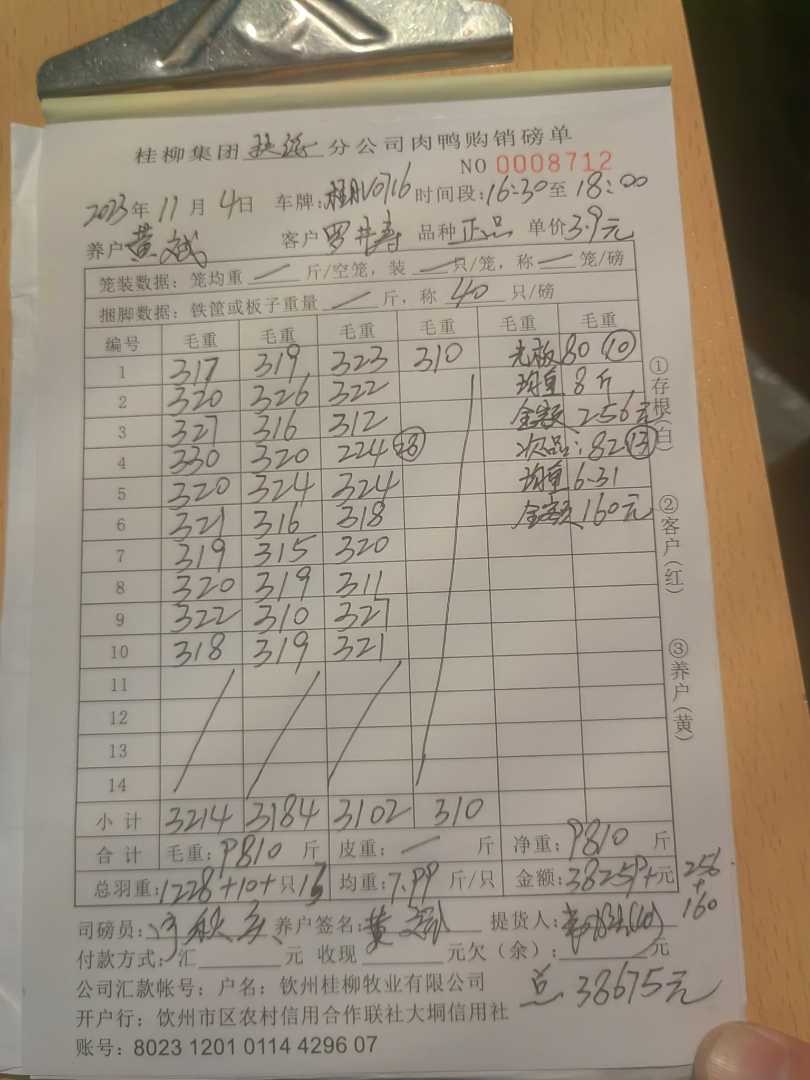 桂柳集团 分公司肉鸭购销磅单
NO 0008712
2023年 11月 4日 车牌: V0716 时间段:16:30至 18:00
养户 黄 客户 罗 寿 品种 正品 单价 3.9元
笼装数据：笼均重 — 斤/空笼，装 — 只/笼，称 — 笼/磅
捆脚数据：铁筐或板子重量 — 斤，称 40 只/磅
编号 毛重 毛重 毛重 毛重 毛重 毛重
1 317 319 323 310 光板 80 (10)
2 320 326 322 均重 8斤
3 327 316 312 金额 256元
4 330 320 224 (28) 次品: 82 (13)
5 320 324 324 均重 6.31
6 321 316 318 金额 160元
7 319 315 320
8 320 319 311
9 322 310 327
10 318 319 321
11
12
13
14
小计 3214 3184 3102 310
合计 毛重: 9810 斤 皮重: — 斤 净重: 9810 斤
总羽重: 1228+10+只13 均重: 7.99 斤/只 金额: 38259+元 256
+
160
司磅员: 养户签名: 黄 提货人:
付款方式：汇 元 收现 元欠（余）: 元
公司汇款帐号：户名：钦州桂柳牧业有限公司
总 38675元
开户行：钦州市区农村信用合作联社大垌信用社
账号：8023 1201 0114 4296 07
①存根(白)
②客户(红)
③养户(黄)